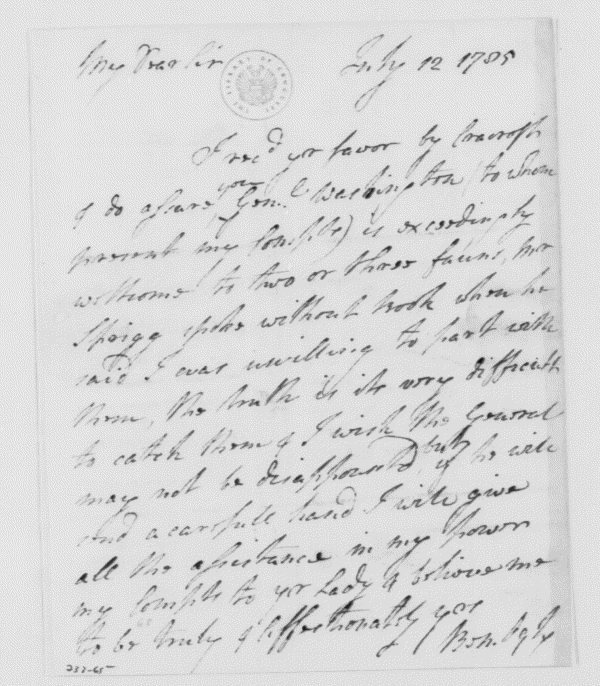 My Dear Sir July 12 1785
THE LIBRARY OF CONGRESS
I rec'd yr favor by Cracroft
& do assure you Genl. Washington (to whom
present my Complts) is exceedingly
wellcome to two or three fawns, Mr
Sprigg spoke without book when he
said I was unwilling to part with
them, the truth is its very difficult
to catch them & I wish the General
may not be disappointed, but if he will
send a carefull hand I will give
all the assistance in my power
my Complts to yr Lady & believe me
to be truly & affectionately yrs
Ben. Ogle
232-65